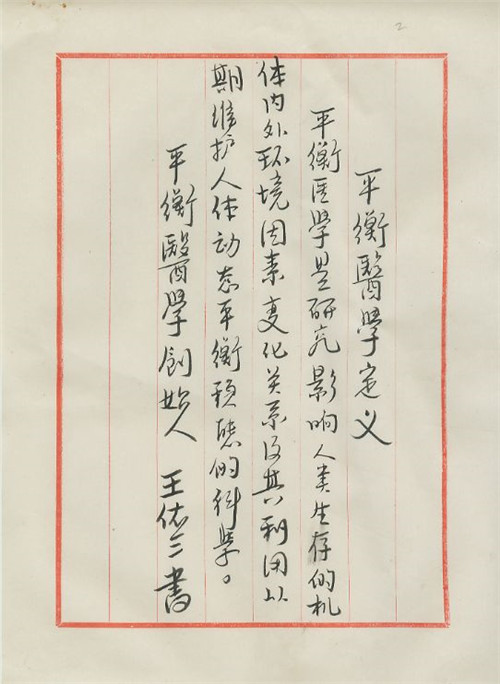 2
平衡醫學定义
平衡医學是研究影响人类生存的机
体内外环境因素变化关系及其利用以
期维护人体动态平衡態的科學。
平衡醫學創始人 王佑三書